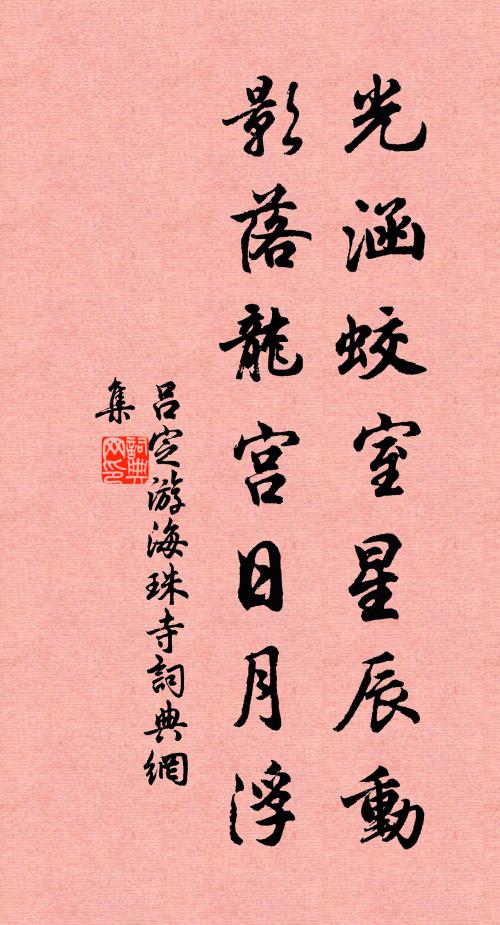 光涵蛟室星辰動
影落龍宮日月浮
呂定游海珠寺詞典網
集
詞典
网印